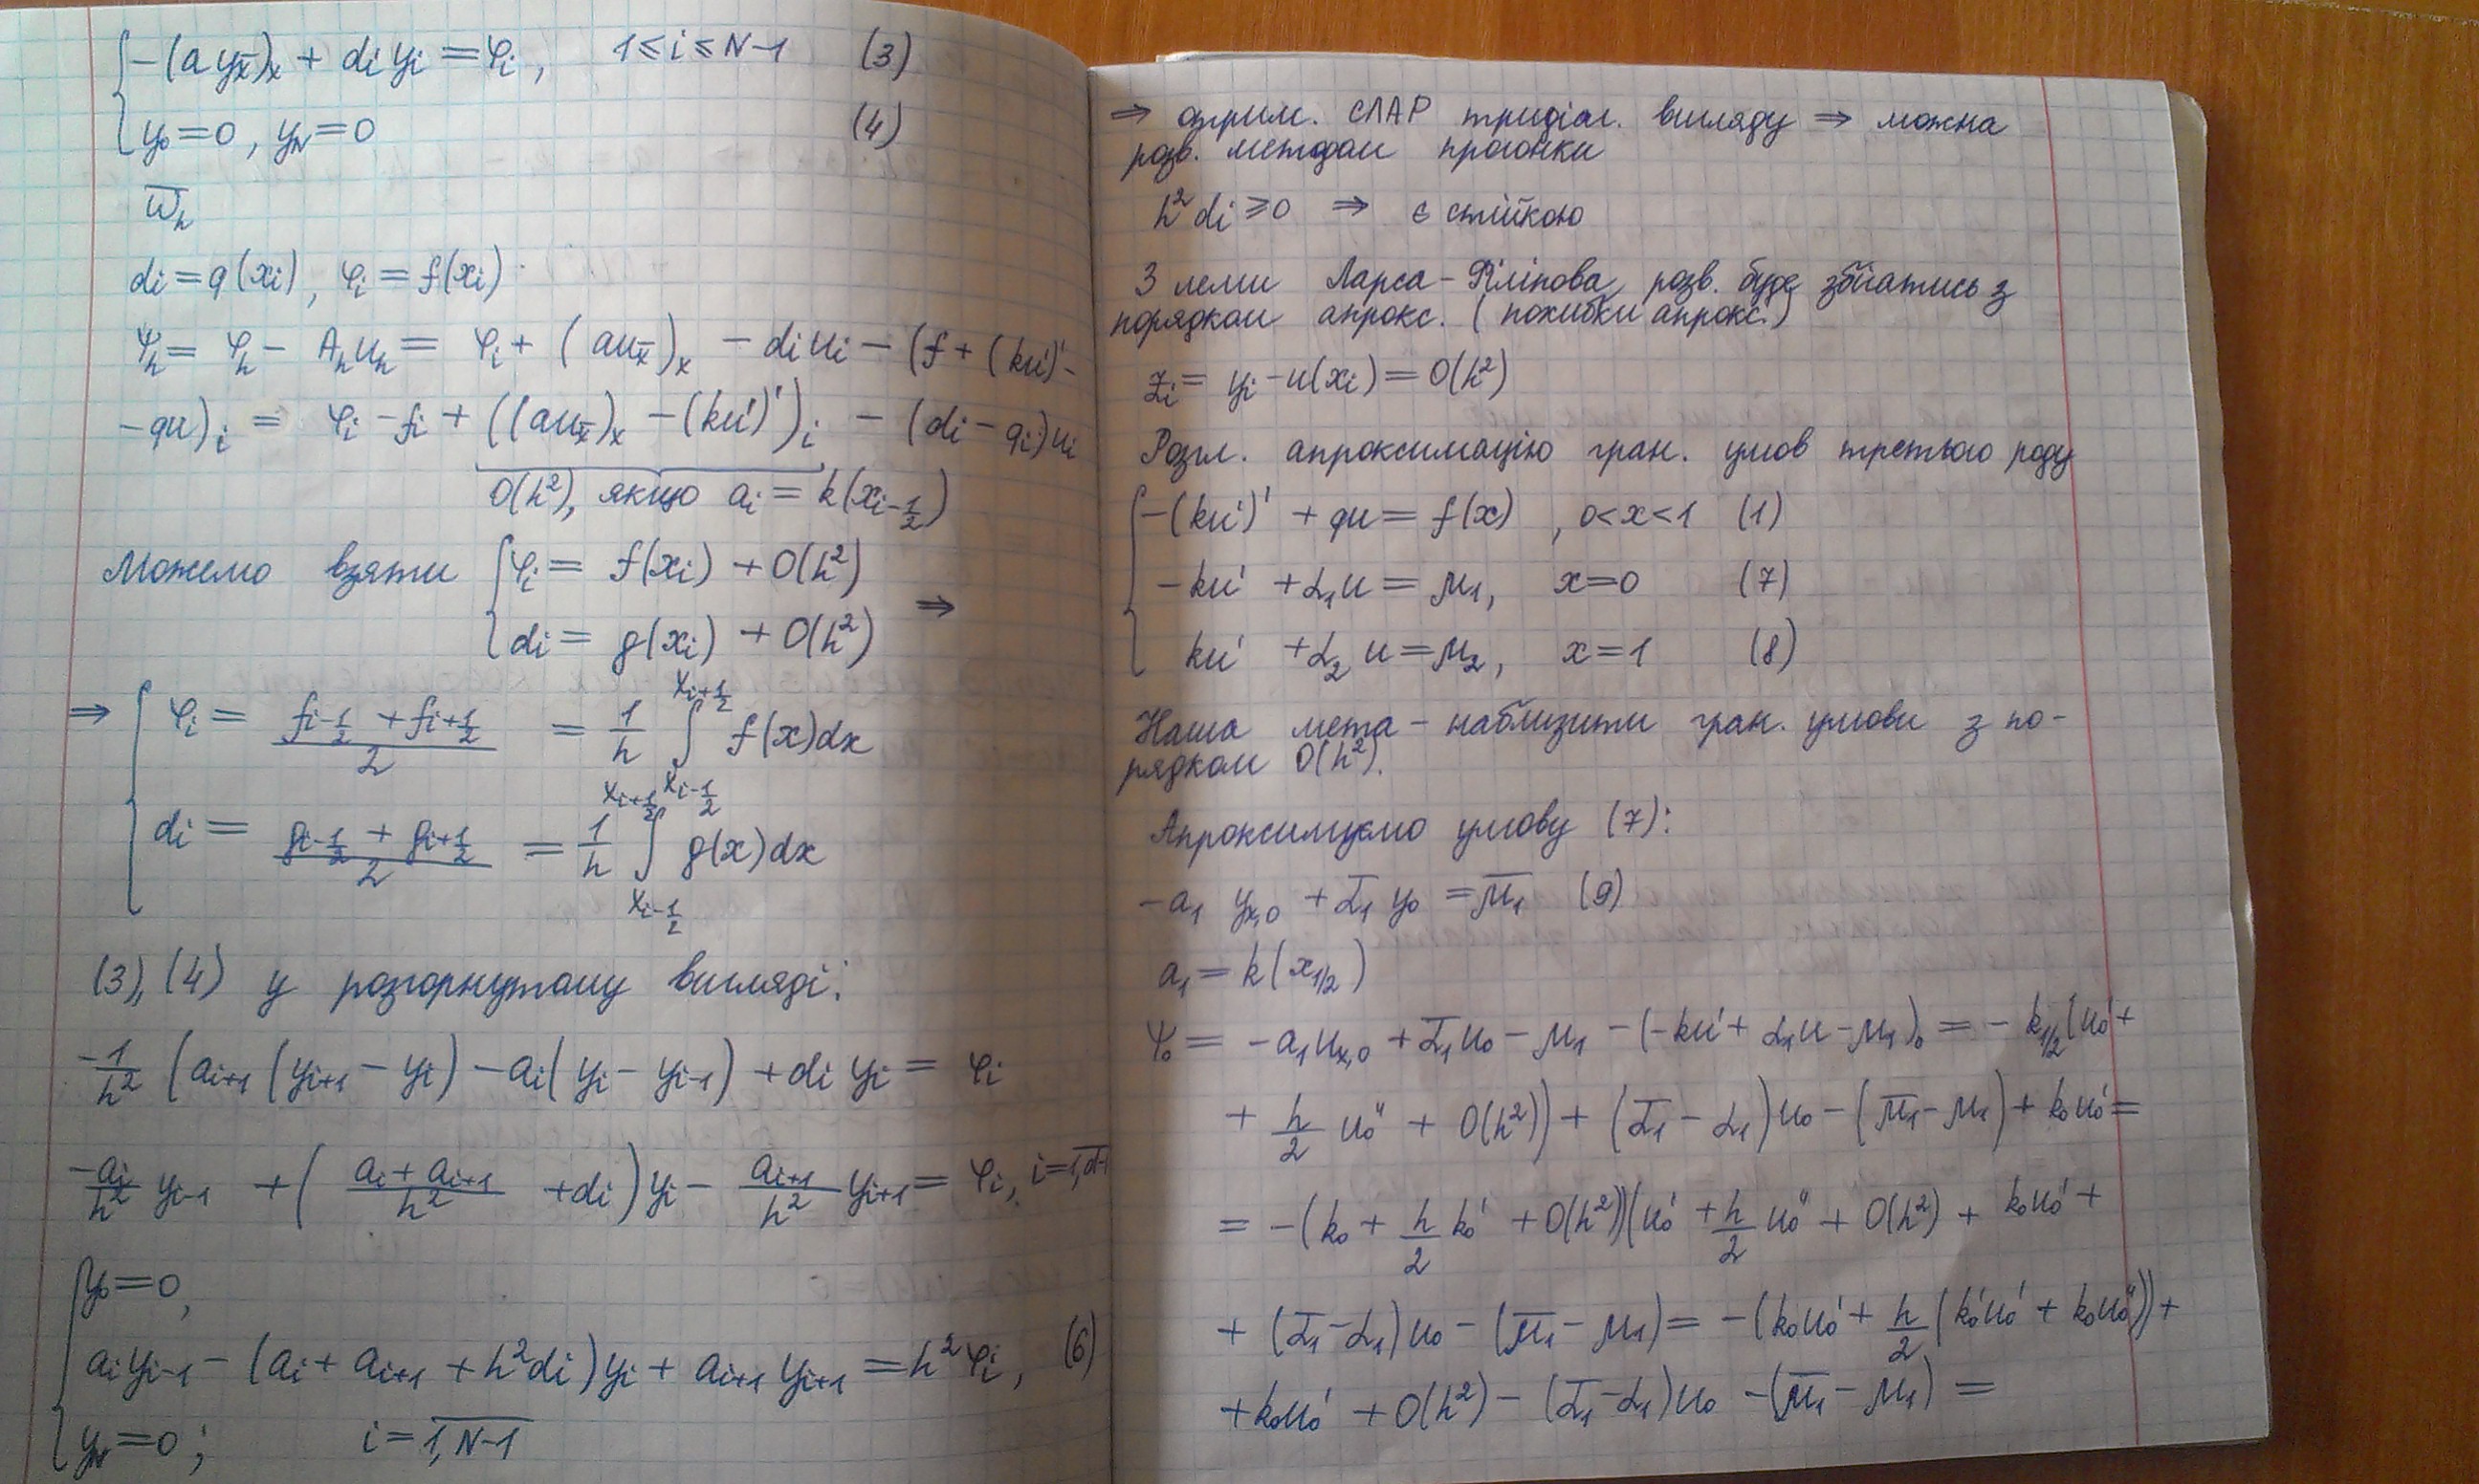 -(a y_x̄)_x + d_i y_i = φ_i , 1 ≤ i ≤ N-1 (3)
y_0 = 0 , y_N = 0 (4)
ω̄_h
d_i = q(x_i) , φ_i = f(x_i)
Ψ_h = φ_h - A_h u_h = φ_i + (a u_x̄)_x - d_i u_i - (f + (ku')' -
- qu)_i = φ_i - f_i + ((a u_x̄)_x - (ku')')_i - (d_i - q_i) u_i
O(h²), якщо a_i = k(x_{i-1/2})
Можемо взяти { φ_i = f(x_i) + O(h²)
d_i = g(x_i) + O(h²) ⇒
⇒ { φ_i = (f_{i-1/2} + f_{i+1/2})/2 = 1/h ∫_{x_{i-1/2}}^{x_{i+1/2}} f(x)dx
d_i = (g_{i-1/2} + g_{i+1/2})/2 = 1/h ∫_{x_{i-1/2}}^{x_{i+1/2}} g(x)dx
(3), (4) у розгорнутому вигляді:
-1/h² (a_{i+1} (y_{i+1} - y_i) - a_i (y_i - y_{i-1}) + d_i y_i = φ_i
-a_i/h² y_{i-1} + ( (a_i + a_{i+1})/h² + d_i ) y_i - a_{i+1}/h² y_{i+1} = φ_i,
y_0 = 0,
a_i y_{i-1} - (a_i + a_{i+1} + h² d_i) y_i + a_{i+1} y_{i+1} = h² φ_i , (6)
y_N = 0 ; i = \overline{1, N-1}
⇒ отрим. СЛАР тридіаг. вигляду ⇒ можна
розв. методом прогонки
h² d_i ≥ 0 ⇒ є стійкою
З леми Ларса - Філіпова розв. буде збігатись з
порядком апрокс. (похибки апрокс.)
z_i = y_i - u(x_i) = O(h²)
Розгл. апроксимацію гран. умов третього роду
-(ku')' + qu = f(x) , 0 < x < 1 (1)
-ku' + α_1 u = μ_1, x = 0 (7)
ku' + α_2 u = μ_2, x = 1 (8)
Наша мета - наблизити гран. умови з по-
рядком O(h²).
Апроксимуємо умову (7):
-a_1 y_{x,0} + ᾱ_1 y_0 = μ̄_1 (9)
a_1 = k(x_{1/2})
Ψ_0 = -a_1 u_{x,0} + ᾱ_1 u_0 - μ_1 - (-ku' + α_1 u - μ_1)_0 = -k_{1/2} (u_0' +
+ h/2 u_0'' + O(h²)) + (ᾱ_1 - α_1) u_0 - (μ̄_1 - μ_1) + k_0 u_0' =
= -(k_0 + h/2 k_0' + O(h²))(u_0' + h/2 u_0'' + O(h²) + k_0 u_0' +
+ (ᾱ_1 - α_1) u_0 - (μ̄_1 - μ_1) = -(k_0 u_0' + h/2 (k_0' u_0' + k_0 u_0'')) +
+ k_0 u_0' + O(h²) - (ᾱ_1 - α_1) u_0 - (μ̄_1 - μ_1) =